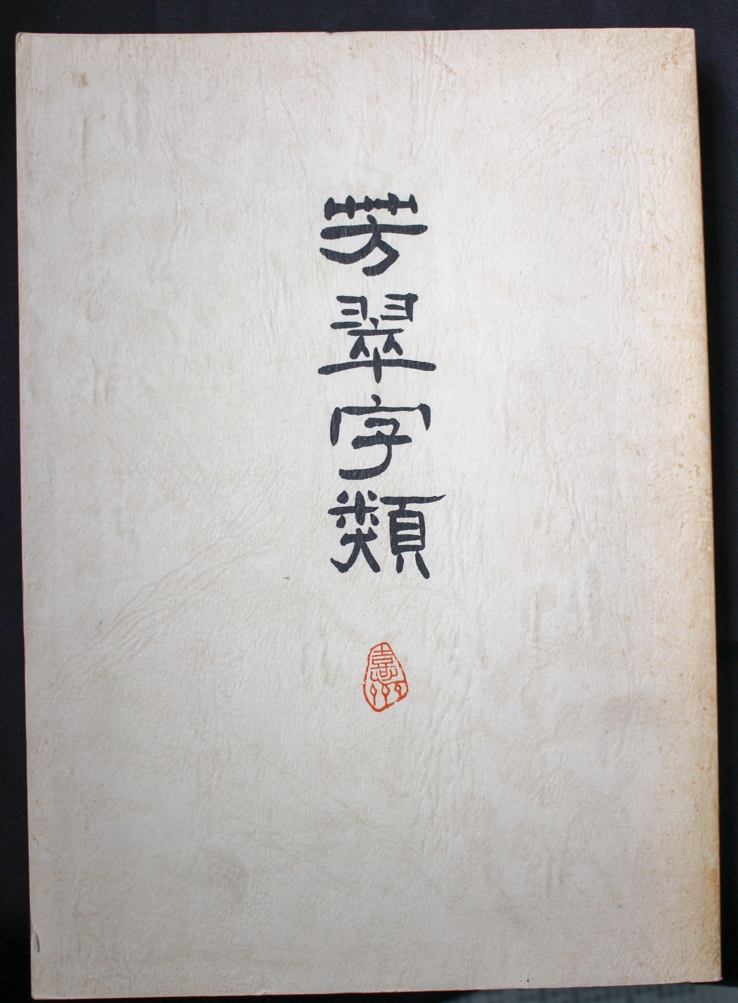 芳翠字類